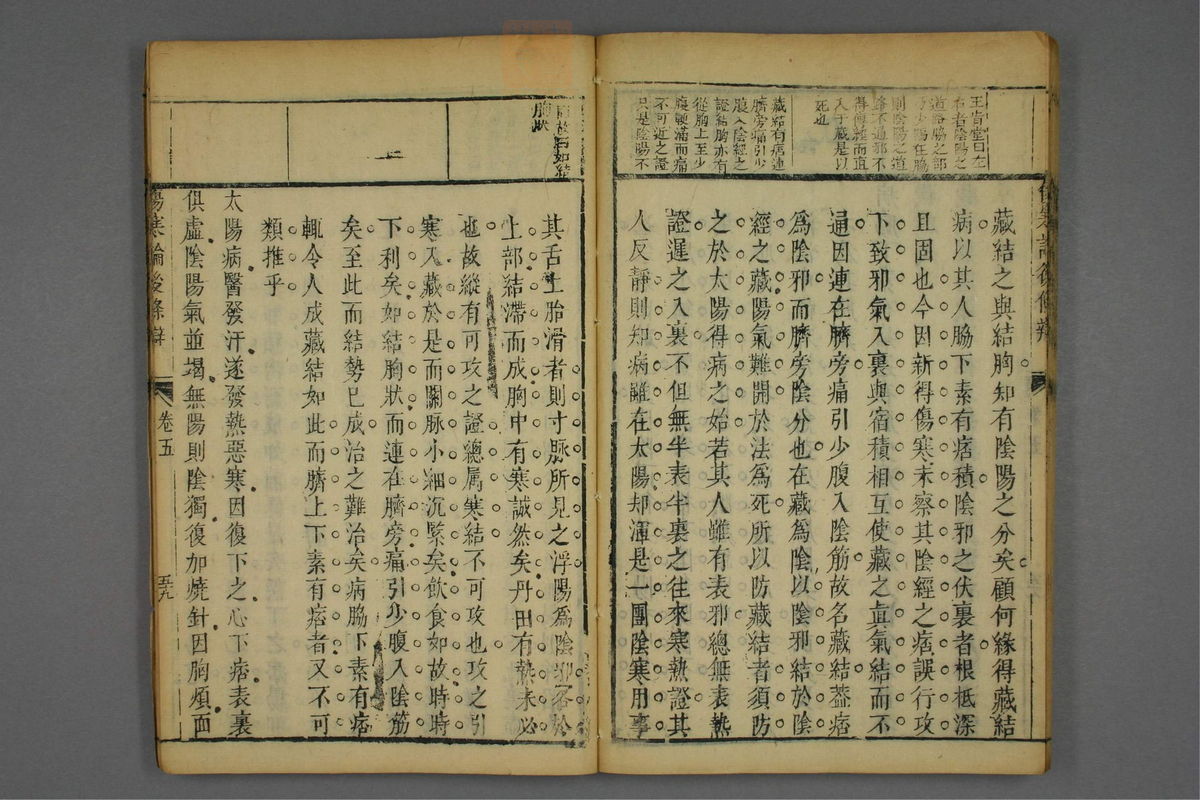 王肯堂曰左
右者陰陽之
道路脇之部
乃少陽在脇
則陰陽之道
路不通邪不
得傳經而直
入于藏是以
死也
藏結有痞連
臍旁痛引少
腹入陰經之
證結胸亦有
從胸上至少
腹鞕滿而痛
不可近之證
只是陰陽不
藏結之與結胸知有陰陽之分矣顧何緣得藏結
病以其人脇下素有痞積陰邪之伏裏者根柢深
且固也今因新得傷寒未察其陰經之痞誤行攻
下致邪氣入裏與宿積相互使藏之眞氣結而不
通因連在臍旁痛引少腹入陰筋故名藏結葢痞
爲陰邪而臍旁陰分也在藏爲陰以陰邪結於陰
經之藏陽氣難開於法爲死所以防藏結者須防
之於太陽得病之始若其人雖有表邪總無表熱
證遲之入裏不但無半表半裏之往來寒熱證其
人反靜則知病雖在太陽却渾是一團陰寒用事
同故曰如結
胸狀
其舌上胎滑者則寸脉所見之浮陽爲陰邪客於
上部結滯而成胸中有寒誠然矣丹田有熱未必
也故縱有可攻之證總属寒結不可攻也攻之引
寒入藏於是而關脉小細沉緊矣飲食如故時時
下利矣如結胸狀而連在臍旁痛引少腹入陰筋
矣至此而結勢已成治之難治矣病脇下素有痞
輒令人成藏結如此而臍上下素有痞者又不可
類推乎
太陽病醫發汗遂發熱惡寒因復下之心下痞表裏
俱虛陰陽氣並竭無陽則陰獨復加燒針因胸煩面
傷寒論後條辯
卷五
五九